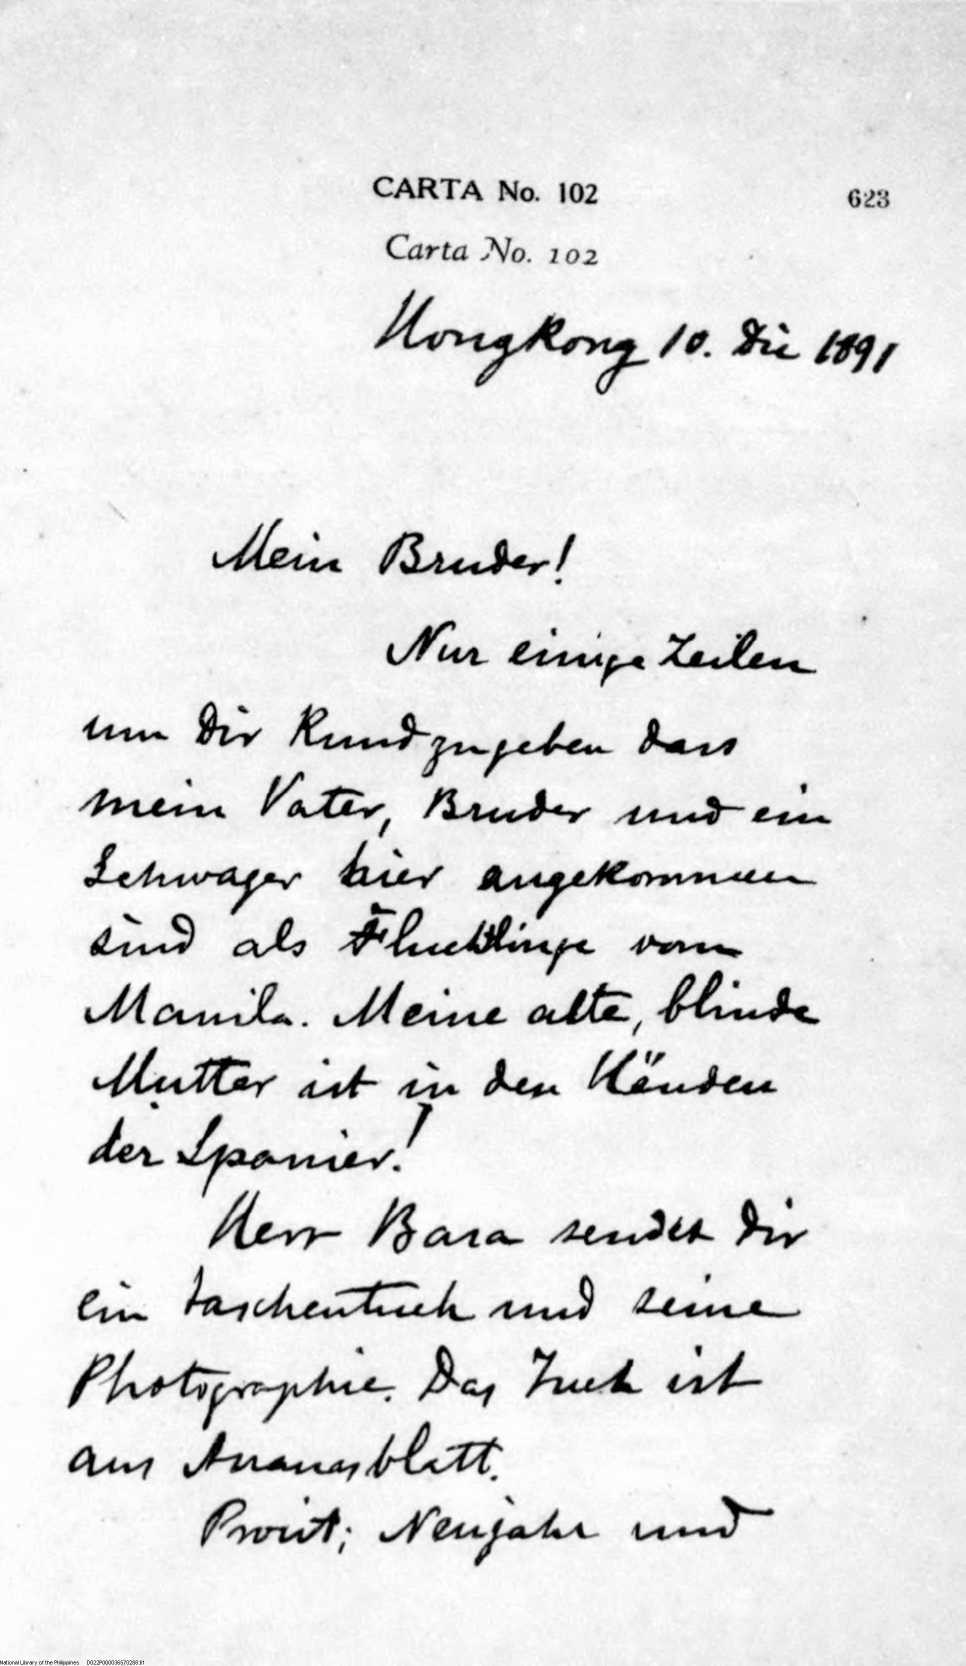 CARTA No. 102
623
Carta No. 102
Hongkong 10. Dic 1891
Mein Bruder!
Nur einige Zeilen
um Dir kundzugeben dass
mein Vater, Bruder und ein
Schwager hier angekommen
sind als Fluchtlinge vom
Manila. Meine alte, blinde
Mutter ist in den Händen
der Spanier!
Herr Basa sendet Dir
ein taschentuch und seine
Photographie. Das Tuch ist
aus Ananasblatt.
Prosit; Neujahr und
National Library of the Philippines